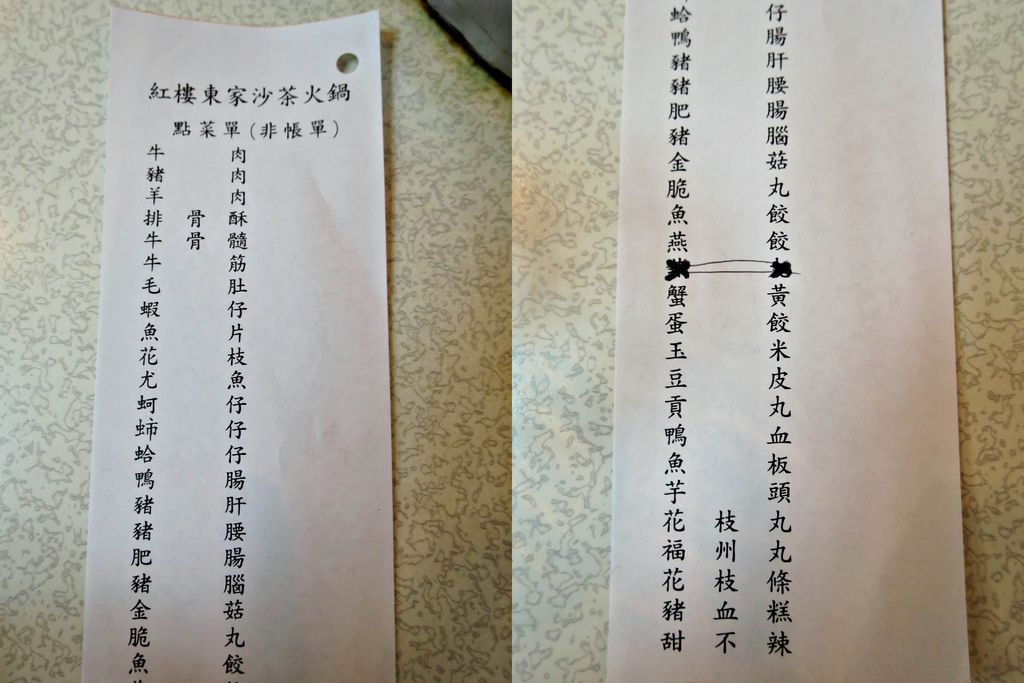 紅樓東家沙茶火鍋
點菜單(非帳單)
牛肉
豬肉
羊肉
排骨酥
牛骨髓
牛筋
毛肚
蝦仔
魚片
花枝
尤魚
蚵仔
仔
蛤仔
鴨腸
豬肝
豬腰
肥腸
豬腦
金菇
脆丸
魚餃
蛤仔
鴨腸
豬肝
豬腰
肥腸
豬腦
金菇
脆丸
魚餃
燕餃
蟹黃
蛋餃
玉米
豆皮
貢丸
鴨血
魚板
芋頭
花枝丸
福州丸
花枝條
豬血糕
甜不辣